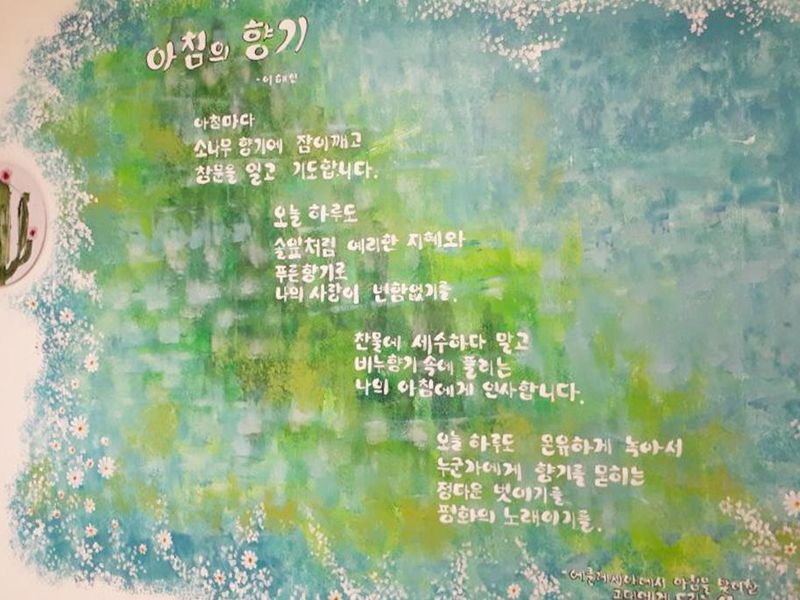 아침의 향기
-이해인
아침마다
소나무 향기에 잠이깨고
창문을 열고 기도합니다.
오늘 하루도
솔잎처럼 예리한 지혜와
푸른향기로
나의 사랑이 변함없기를.
찬물에 세수하다 말고
비누향기 속에 풀리는
나의 아침에게 인사합니다.
오늘 하루도 온유하게 녹아서
누군가에게 향기를 묻히는
정다운 벗이기를
평화의 노래이기를.
아침을 맞이한
그대에게